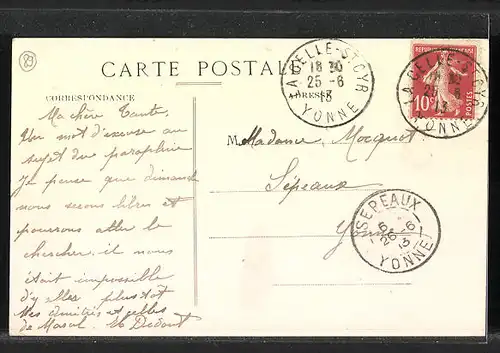 89
CARTE POSTALE
CORRESPONDANCE
ADRESSE
LA CELLE-ST-CYR
18 30
25 - 6
13
YONNE
RÉPUBLIQUE FRANÇAISE
10c
POSTES
LA CELLE-ST-CYR
25 - 6
13
YONNE
Ma chère Tante,
Un mot d'excuse au
sujet du parapluie
Je pense que dimanche
nous serons libres et
pourrons aller le
chercher. il nous
était impossible
d'y aller plus tôt
Mes amitiés et celles
de Marcel.
Madame Mocquot
Sépeaux
Yonne
SEPEAUX
YONNE